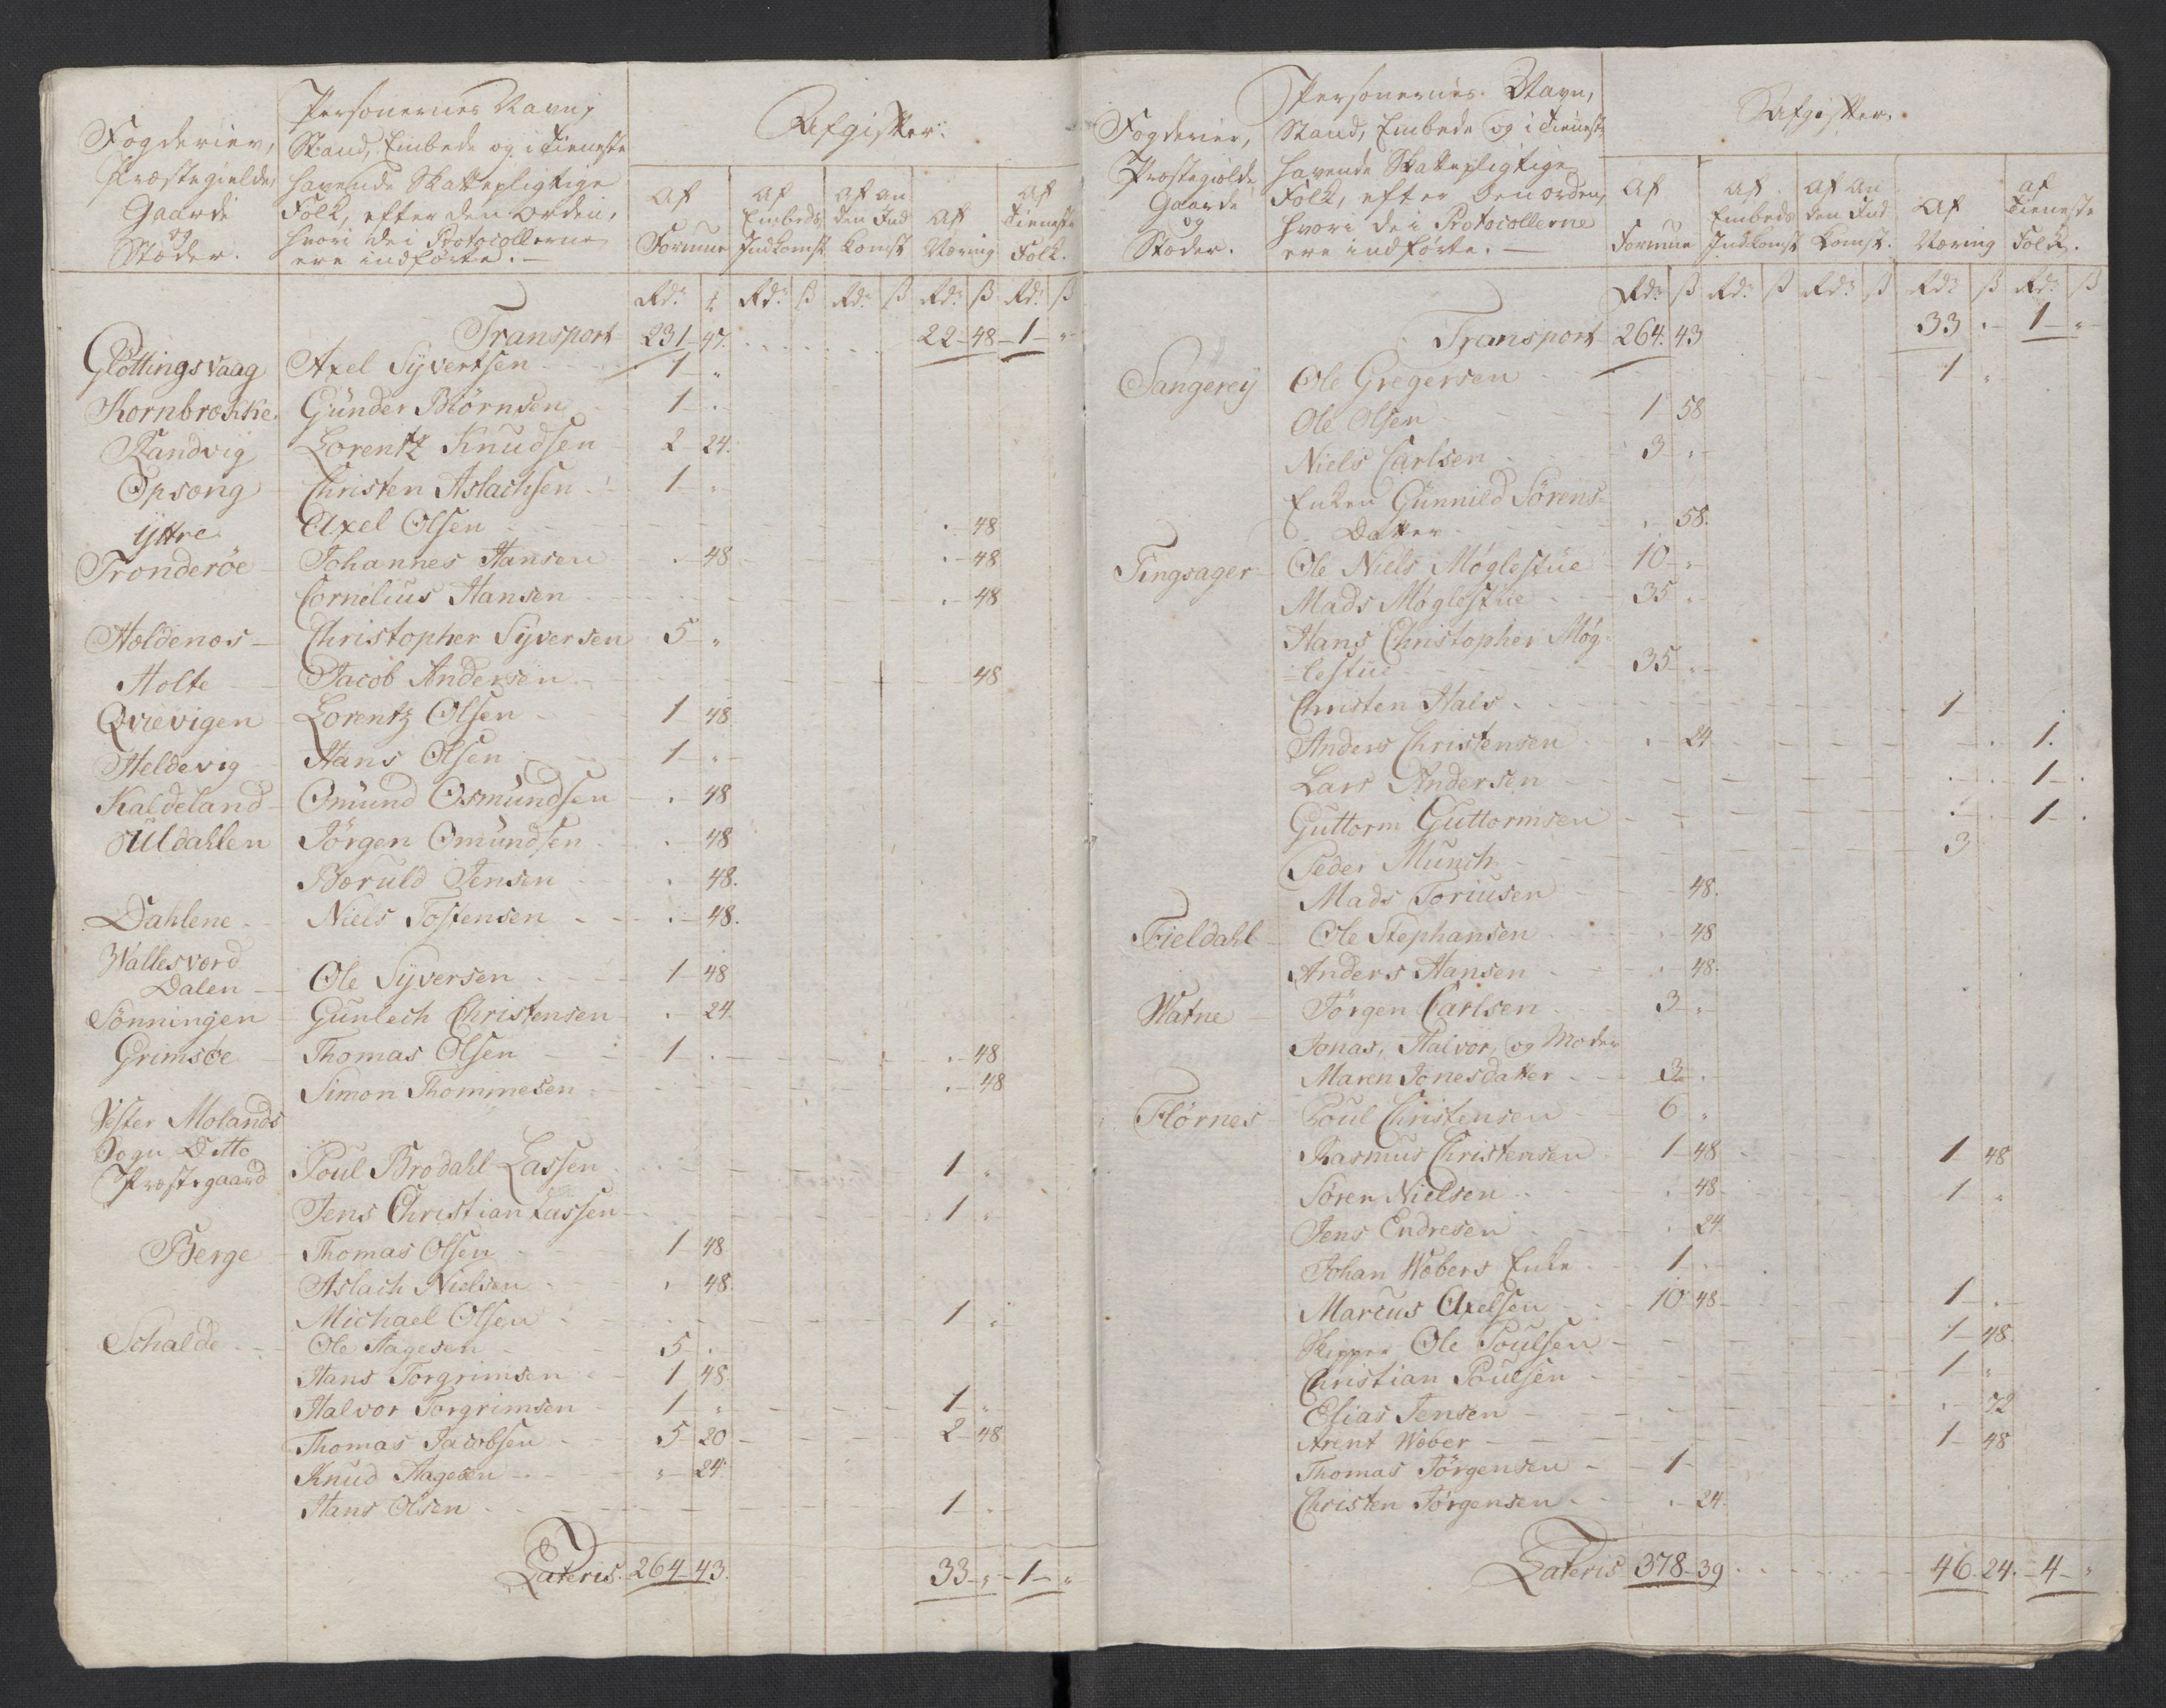 Fogderier,
Præstegielde,
Gaarde
og
Stæder.
Personernes Navn,
Stand, Embede og i Tieneste
havende Skattepligtige
Folk, efter den Orden,
hvori de i Protocollerne
ere indførte. —
Afgifter.
Af Formue
Af Embeds Indkomst
Af anden Indkomst
Af Næring
Af Tieneste Folk.
Rdr. ß Rdr. ß Rdr. ß Rdr. ß Rdr. ß
Transport 231 - 47. 22 - 48 - 1 - "
Glöttingsvaag Axel Syvertsen 1 "
Kornbrække Gúnder Biörnsen 1 - .
Sandvig Lorentz Knudsen 2 24.
Opsæng Christen Aslachsen 1 - "
ÿttre Axel Olsen . - 48
Tronderöe Johannes Hansen . 48 . - 48
Cornelius Hansen . - 48
Holdenæs Christopher Syversen 5 - "
Holte Jacob Andersen 48
Qvievigen Lorentz Olsen 1 48.
Heldevig Hans Olsen 1 - "
Kaldeland Omúnd Osmúndsen . - 48
Uldahlen Jörgen Omúndsen . - 48
Bæruld Jensen . 48.
Dahlene Niels Tostensen . - 48.
Wallesværd
Dalen Ole Syversen 1 48
Sönningen Gunlech Christensen . - 24.
Grimsöe Thomas Olsen 1 . . - 48
Simon Thommesen . - 48
Vester Molands
Sogn Ditto
Præstegaard Poul Brodahl Lassen 1 "
Jens Christian Lassen 1 "
Berge Thomas Olsen 1 48
Aslach Nielsen " 48.
Michael Olsen 1 "
Schalde Ole Aagesen 5 - .
Hans Torgrimsen 1 48.
Halvor Torgrimsen 1 " 1 "
Thomas Jacobsen 5 20 2 - 48
Knud Aagesen " - 24.
Hans Olsen 1 - "
Lateris. 264 - 43. 33 - " - 1 - "
Fogderier,
Præstegielde,
Gaarde
og
Stæder.
Personernes Navn,
Stand, Embede og i Tieneste
havende Skattepligtige
Folk, efter den Orden,
hvori de i Protocollerne
ere indførte. —
Afgifter.
Af Formue
Af Embeds Indkomst
Af anden Indkomst.
Af Næring
Af Tieneste Folk.
Rdr. ß Rdr. ß Rdr. ß Rdr. ß Rdr. ß
Transport 264. 43 33 . - 1 - "
Sangereÿ Ole Gregersen 1 "
Ole Olsen 1 58
Niels Carlsen 3 - "
Enken Gúnnild Sörens=
Datter . - 58.
Tingsager Ole Niels Møglestúe 10 - "
Mads Møglestúe 35 "
Hans Christopher Møg=
=lestúe 35 "
Christen Hals 1 .
Anders Christensen . - 24 1.
Lars Andersen 1 - .
Guttorm Guttormsen 1 - .
Peder Munch 3
Mads Toriusen 48.
Fieldahl Ole Stephansen 48
Anders Hansen . 48.
Watne Jörgen Carlsen 3 - "
Jonas, Halvor, og Moder
Maren Jonesdatter 3 .
Flörnes Poul Christensen 6 "
Rasmus Christensen 1 - 48 1 48
Sören Nielsen . 48. 1 "
Jens Endresen . 24.
Johan Wøbers Enke 1 .
Marcus Axelsen 10 48 1 - .
Skipper Ole Poulsen 1 - 48.
Christian Poulsen 1 - "
Elias Jensen . - 72
Arent Wøber 1 - 48
Thomas Jörgensen 1 -
Christen Jörgensen . - 24.
Lateris 378 - 39 46. 24. - 4 - "